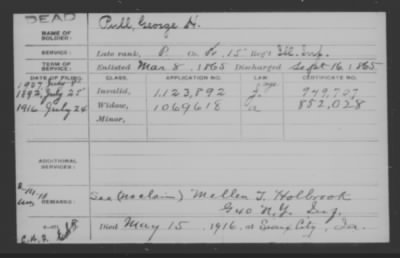 DEAD
NAME OF SOLDIER: Pull, George H.
SERVICE: Late rank, P Co. 15 Reg't Ill. Inf.
TERM OF SERVICE: Enlisted Mar 8, 1865 Discharged Sept 16, 1865
DATE OF FILING. CLASS. APPLICATION NO. LAW. CERTIFICATE NO.
1892, July 25 Invalid, 1,123,892
1916, July 24 Widow, 1069618 852,028
Minor,
ADDITIONAL SERVICES:
REMARKS: See (no claim) Mellen T. Holbrook
G 40 N.Y. Inf.
Died May 15, 1916, at Sioux City, Ia.